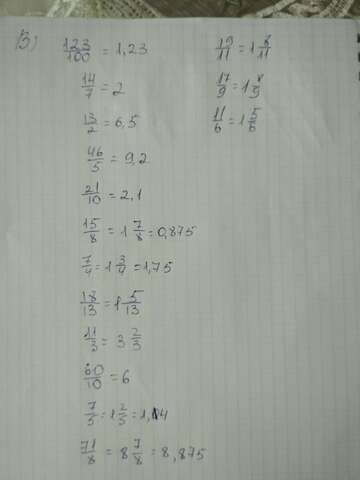 В)
123/100 = 1,23
14/7 = 2
13/2 = 6,5
46/5 = 9,2
21/10 = 2,1
15/8 = 1 7/8 = 0,875
7/4 = 1 3/4 = 1,75
18/13 = 1 5/13
11/3 = 3 2/3
60/10 = 6
7/5 = 1 2/5 = 1,4
71/8 = 8 7/8 = 8,875
19/11 = 1 8/11
17/9 = 1 8/9
11/6 = 1 5/6